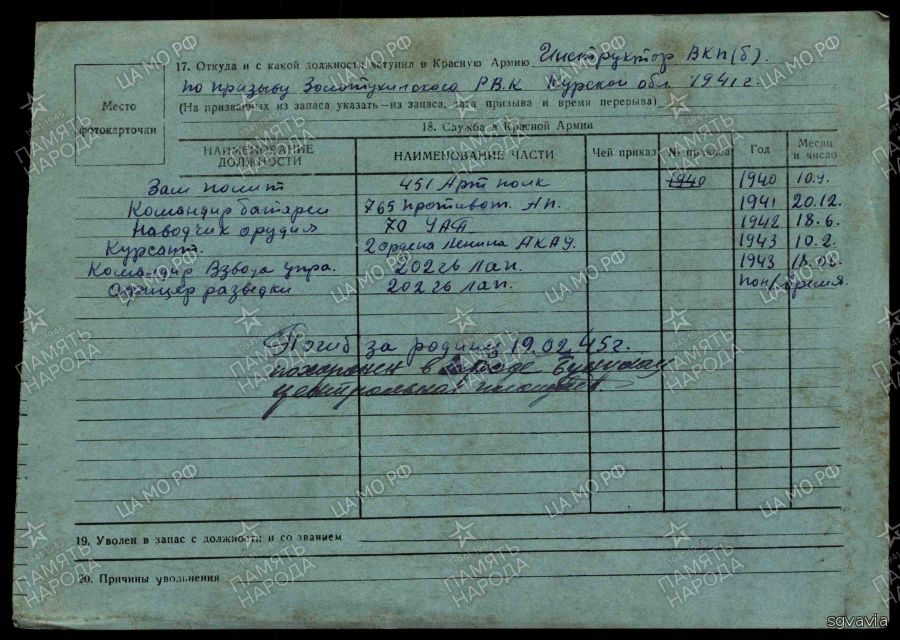 17. Откуда и с какой должности вступил в Красную Армию Инструктор ВКП(б).
по призыву Золотухинского РВК Курской обл 1941 г.
(На призванных из запаса указать—из запаса, дата призыва и время перерыва)
Место
фотокарточки
18. Служба в Красной Армии
НАИМЕНОВАНИЕ ДОЛЖНОСТИ НАИМЕНОВАНИЕ ЧАСТИ Чей приказ № приказа Год Месяц и число
Зам полит 451 Арт полк 1940 1940 10.9.
Командир батареи 765 противот. Ап. 1941 20.12.
Наводчик орудия 70 УАП 1942 18.6.
Курсант. 2 ордена Ленина АКАУ. 1943 10.2.
Командир Взвода упра. 202 гв лап. 1943 18.08.
Офицер разведки 202 гв лап. время.
Погиб за родину 19.02.45 г.
похоронен в городе
центральная
19. Уволен в запас с должности и со званием
20. Причины увольнения
ЦА МО РФ
ПАМЯТЬ НАРОДА
1941-1945
sgvavia